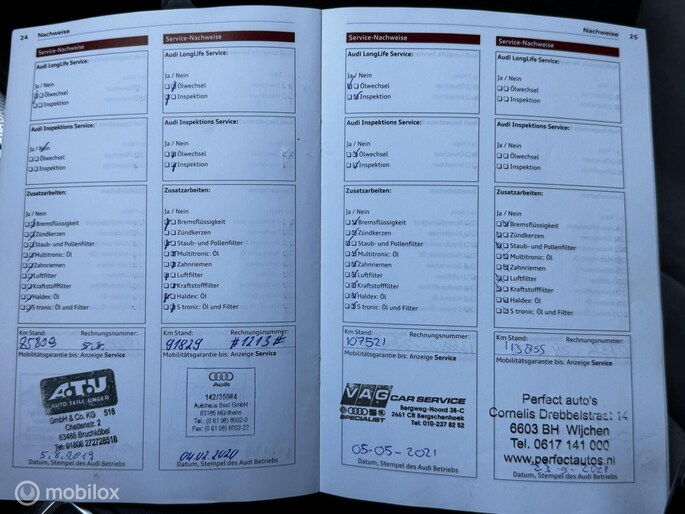 24 Nachweise
Service-Nachweise
Audi LongLife Service:
Ja / Nein
Ölwechsel
Inspektion
Audi Inspektions Service:
Ja / Nein
Ölwechsel
Inspektion
Zusatzarbeiten:
Ja / Nein
Bremsflüssigkeit
Zündkerzen
Staub- und Pollenfilter
Multitronic: Öl
Zahnriemen
Luftfilter
Kraftstofffilter
Haldex: Öl
S tronic: Öl und Filter
Km Stand: Rechnungsnummer:
Mobilitätsgarantie bis: Anzeige Service
A.T.U
AUTO TEILE UNGER
GmbH & Co. KG 516
63486 Bruchköbel
5.8.2019
Datum, Stempel des Audi Betriebs
Service-Nachweise
Audi LongLife Service:
Ja / Nein
Ölwechsel
Inspektion
Audi Inspektions Service:
Ja / Nein
Ölwechsel
Inspektion
Zusatzarbeiten:
Ja / Nein
Bremsflüssigkeit
Zündkerzen
Staub- und Pollenfilter
Multitronic: Öl
Zahnriemen
Luftfilter
Kraftstofffilter
Haldex: Öl
S tronic: Öl und Filter
Km Stand: Rechnungsnummer:
91829 #1213#
Mobilitätsgarantie bis: Anzeige Service
Audi
04.02.2020
Datum, Stempel des Audi Betriebs
Nachweise 25
Service-Nachweise
Audi LongLife Service:
Ja / Nein
Ölwechsel
Inspektion
Audi Inspektions Service:
Ja / Nein
Ölwechsel
Inspektion
Zusatzarbeiten:
Ja / Nein
Bremsflüssigkeit
Zündkerzen
Staub- und Pollenfilter
Multitronic: Öl
Zahnriemen
Luftfilter
Kraftstofffilter
Haldex: Öl
S tronic: Öl und Filter
Km Stand: Rechnungsnummer:
107521
Mobilitätsgarantie bis: Anzeige Service
VAG CAR SERVICE
SPECIALIST
Bergweg-Noord 38-C
2661 CR Bergschenhoek
Tel: 010-237 82 52
05-05-2021
Datum, Stempel des Audi Betriebs
Service-Nachweise
Audi LongLife Service:
Ja / Nein
Ölwechsel
Inspektion
Audi Inspektions Service:
Ja / Nein
Ölwechsel
Inspektion
Zusatzarbeiten:
Ja / Nein
Bremsflüssigkeit
Zündkerzen
Staub- und Pollenfilter
Multitronic: Öl
Zahnriemen
Luftfilter
Kraftstofffilter
Haldex: Öl
S tronic: Öl und Filter
Km Stand: Rechnungsnummer:
Mobilitätsgarantie bis: Anzeige Service
Perfect auto's
Cornelis Drebbelstraat 14
6603 BH Wijchen
Tel. 0617 141 000
www.perfectautos.nl
Datum, Stempel des Audi Betriebs
mobilox